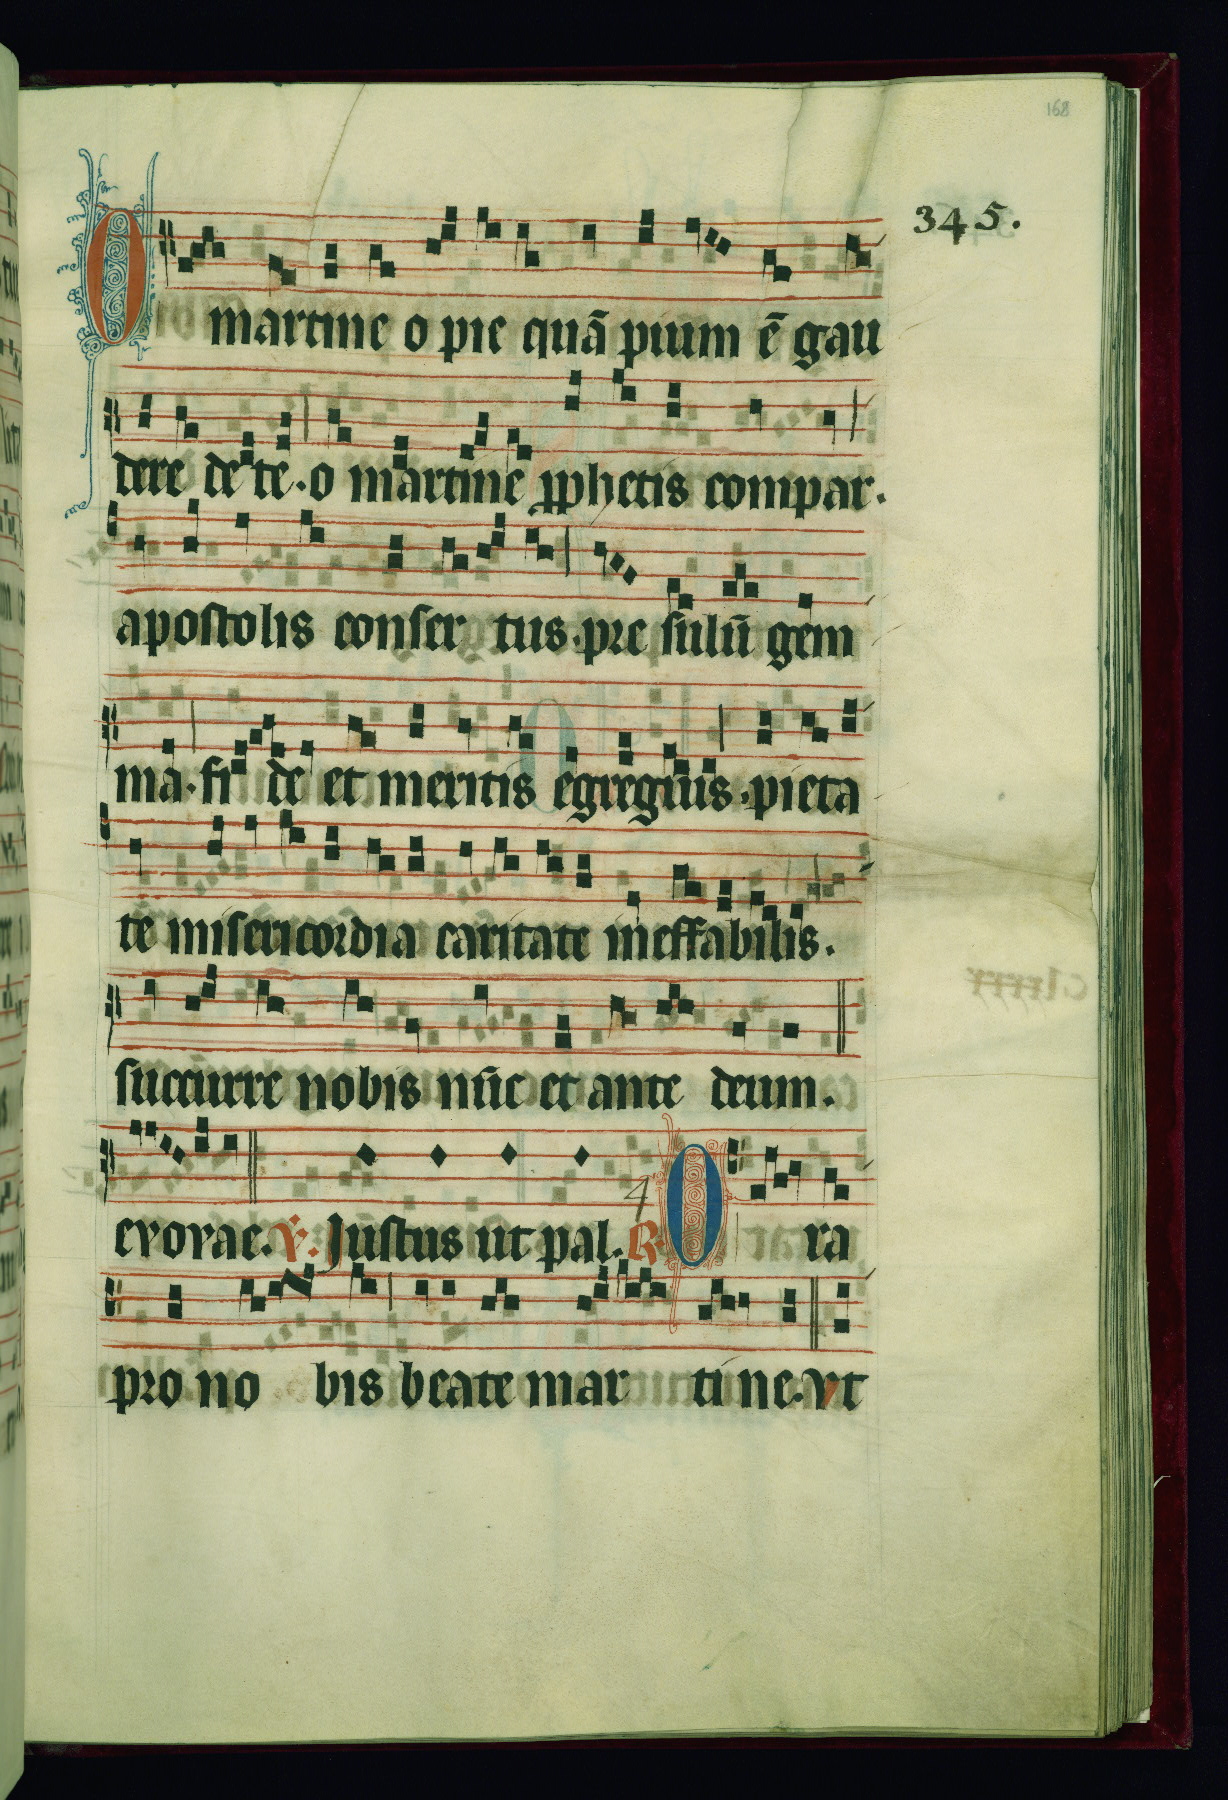 168
345.
O martine o pie quā pium ē gau
dere de te. o martine pphetis compar.
apostolis conser tus. pre sulū gem
ma. fi de et meritis egregius. pieta
te misericordia caritate ineffabilis.
succurre nobis nūc et ante deum.
evovae. V. Justus ut pal. R. 4 O ra
pro no bis beate mar ti ne. vt